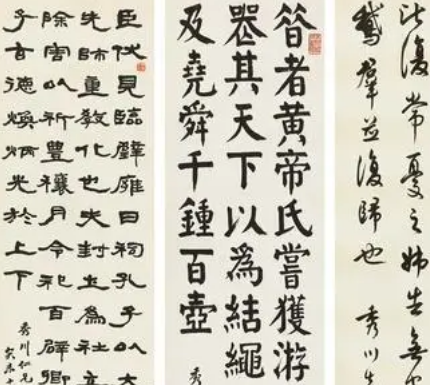 此復常憂之姊告無
鵝群並復歸也 秀川先
昔者黃帝氏嘗獲游
器其天下以為結繩
及堯舜千鍾百壺
秀
臣伏見臨璧廱日祠孔子以大
先師重教化也夫封土為社立
除害以祈豐穰月令祀百辟卿
子玄德煥炳光於上下
秀川仁兄
癸未十